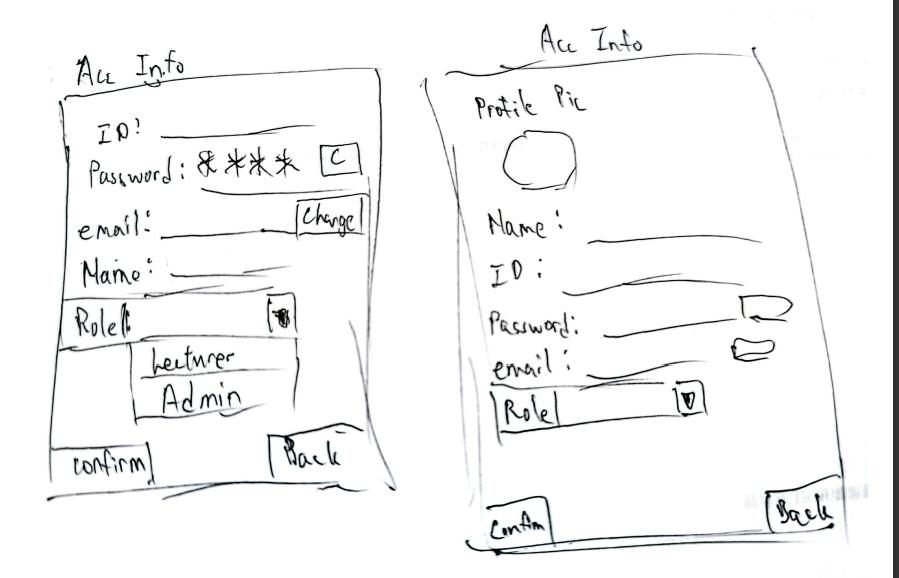 Acc Info
ID:
Password: **** C
email: Change
Name:
Role:
Lecturer
Admin
confirm Back
Acc Info
Profile Pic
Name:
ID:
Password:
email:
Role
Confim Back